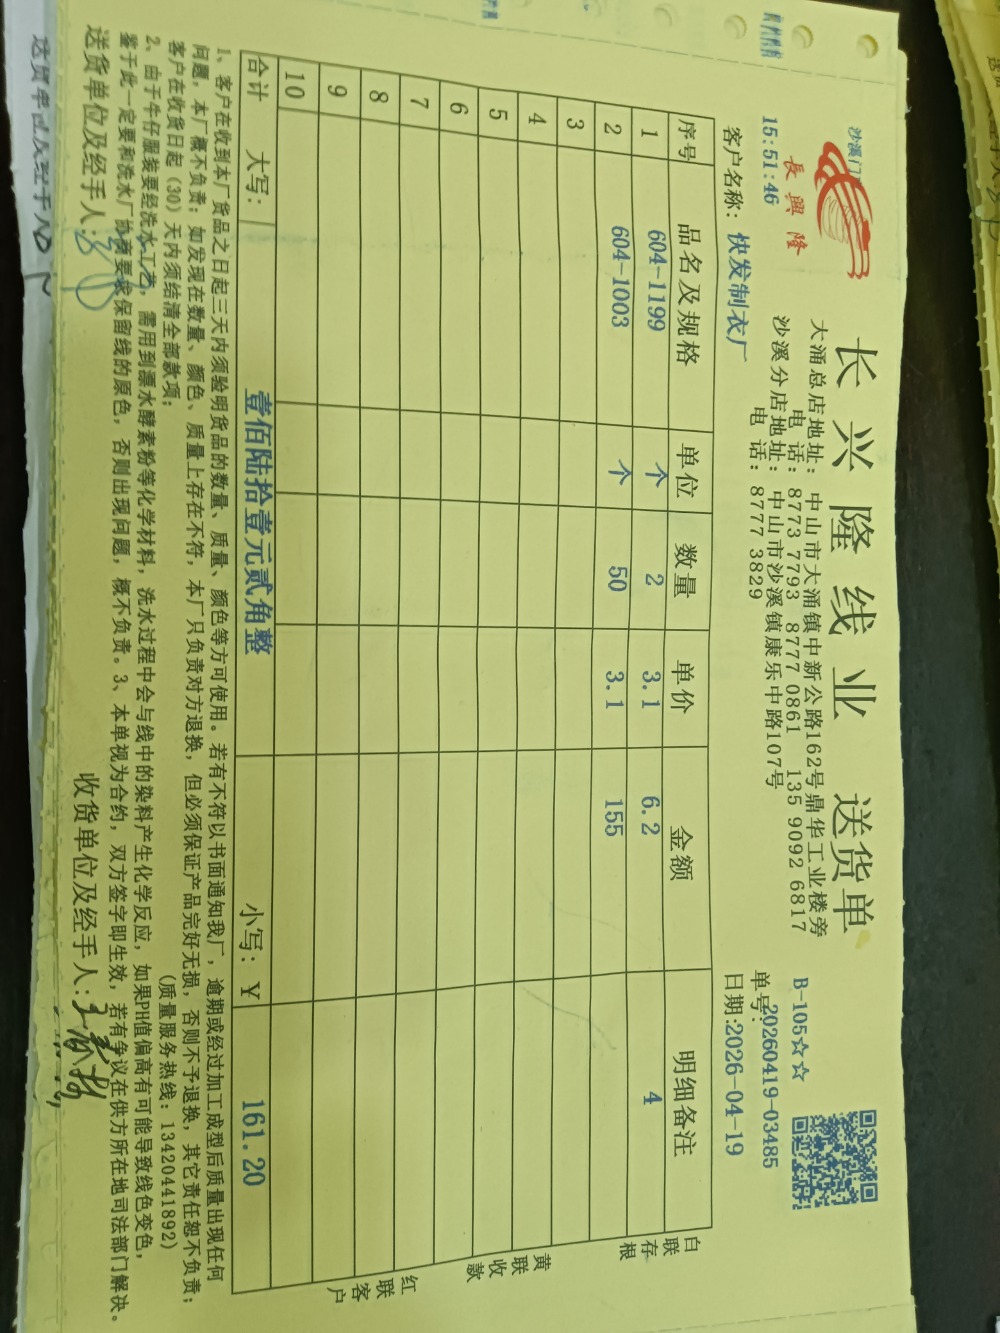 沙溪门
長興隆
长兴隆线业 送货单
大涌总店地址：中山市大涌镇中新公路162号鼎华工业楼旁
电 话：8773 7793 8777 0861 135 9092 6817
沙溪分店地址：中山市沙溪镇康乐中路107号
电 话：8777 3829
B-105☆☆
单号:20260419-03485
15:51:46
客户名称：快发制衣厂
日期:2026-04-19
序号 品名及规格 单位 数量 单价 金额 明细备注
1 604-1199 个 2 3.1 6.2 4
2 604-1003 个 50 3.1 155
3
4
5
6
7
8
9
10
合计 大写：壹佰陆拾壹元贰角整 小写：￥ 161.20
白联存根
黄联收款
红联客户
1、客户在收到本厂货品之日起三天内须验明货品的数量、质量、颜色等方可使用。若有不符以书面通知我厂，逾期或经过加工成型后质量出现任何
问题，本厂概不负责；如发现在数量、颜色、质量上存在不符，本厂只负责对方退换，但必须保证产品完好无损，否则不予退换，其它责任恕不负责；
客户在收货日起（30）天内须结清全部款项；
(质量服务热线：13420441892)
2、由于牛仔服装要经洗水工艺，需用到漂水酵素粉等化学材料，洗水过程中会与线中的染料产生化学反应，如果PH值偏高有可能导致线色变色，
鉴于此一定要和洗水厂协商要求保留线的原色，否则出现问题，概不负责。3、本单视为合约，双方签字即生效，若有争议在供方所在地司法部门解决。
送货单位及经手人：
收货单位及经手人：
送货单位及经手人